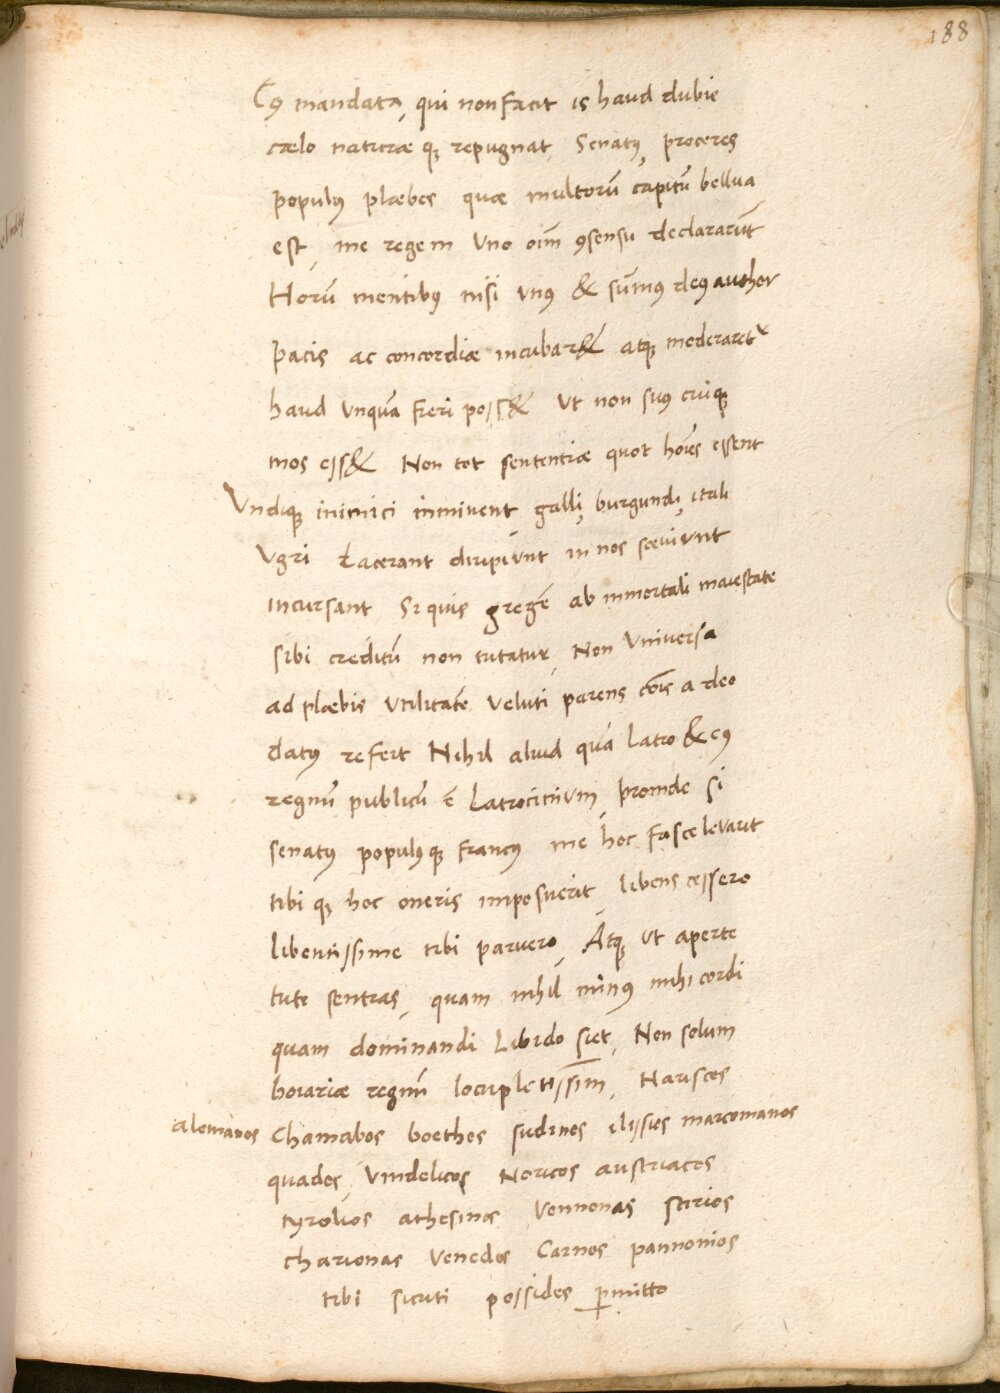 188
Eꝰ mandata, qui non facit is haud dubie
cælo naturæ qꝫ repugnat, Senatꝰ, proceres
populꝰ plæbes quæ multorū capitū bellua
est, me regem uno oīm ꝯsensu declararūt
Horū mentibꝰ nisi unꝰ & sūmꝰ deꝰ author
pacis ac concordiæ incubar& atqꝫ moderaret᷑
haud unquā fieri poss& ut non suꝰ cuiqꝫ
mos ess& Non tot sententiæ quot hoīes essent
Undiqꝫ inimici inminent galli, burgundi, itali
Ugri Lacerant diripiunt in nos sæviunt
incursant Si quis gregē ab inmortali maiestate
sibi creditū non tutatur, Non Universa
ad plæbis utilitatē veluti parens cōis a deo
datꝰ refert Nihil aliud quā latro & eꝰ
regnū publicū ē Latrocinium, proinde si
senatꝰ populꝰ qꝫ francꝰ me hoc fasce levarit
tibi qꝫ hoc oneris imposuerit, libens cessero
libentissime tibi paruero, Atqꝫ ut aperte
tute sentias, quam nihil minꝰ mihi cordi
quam dominandi Libido siet, Non solum
boiariæ regnū locupletissim̄, Nariscos
alemanos Chamabos boethos sudinos ilissios marcomanos
quados, Vindelicos Noricos austriacos
tyrolios athesinos Vennonas stirios
charionas Venedos Carnos pannonios
tibi sicuti possides ꝑmitto